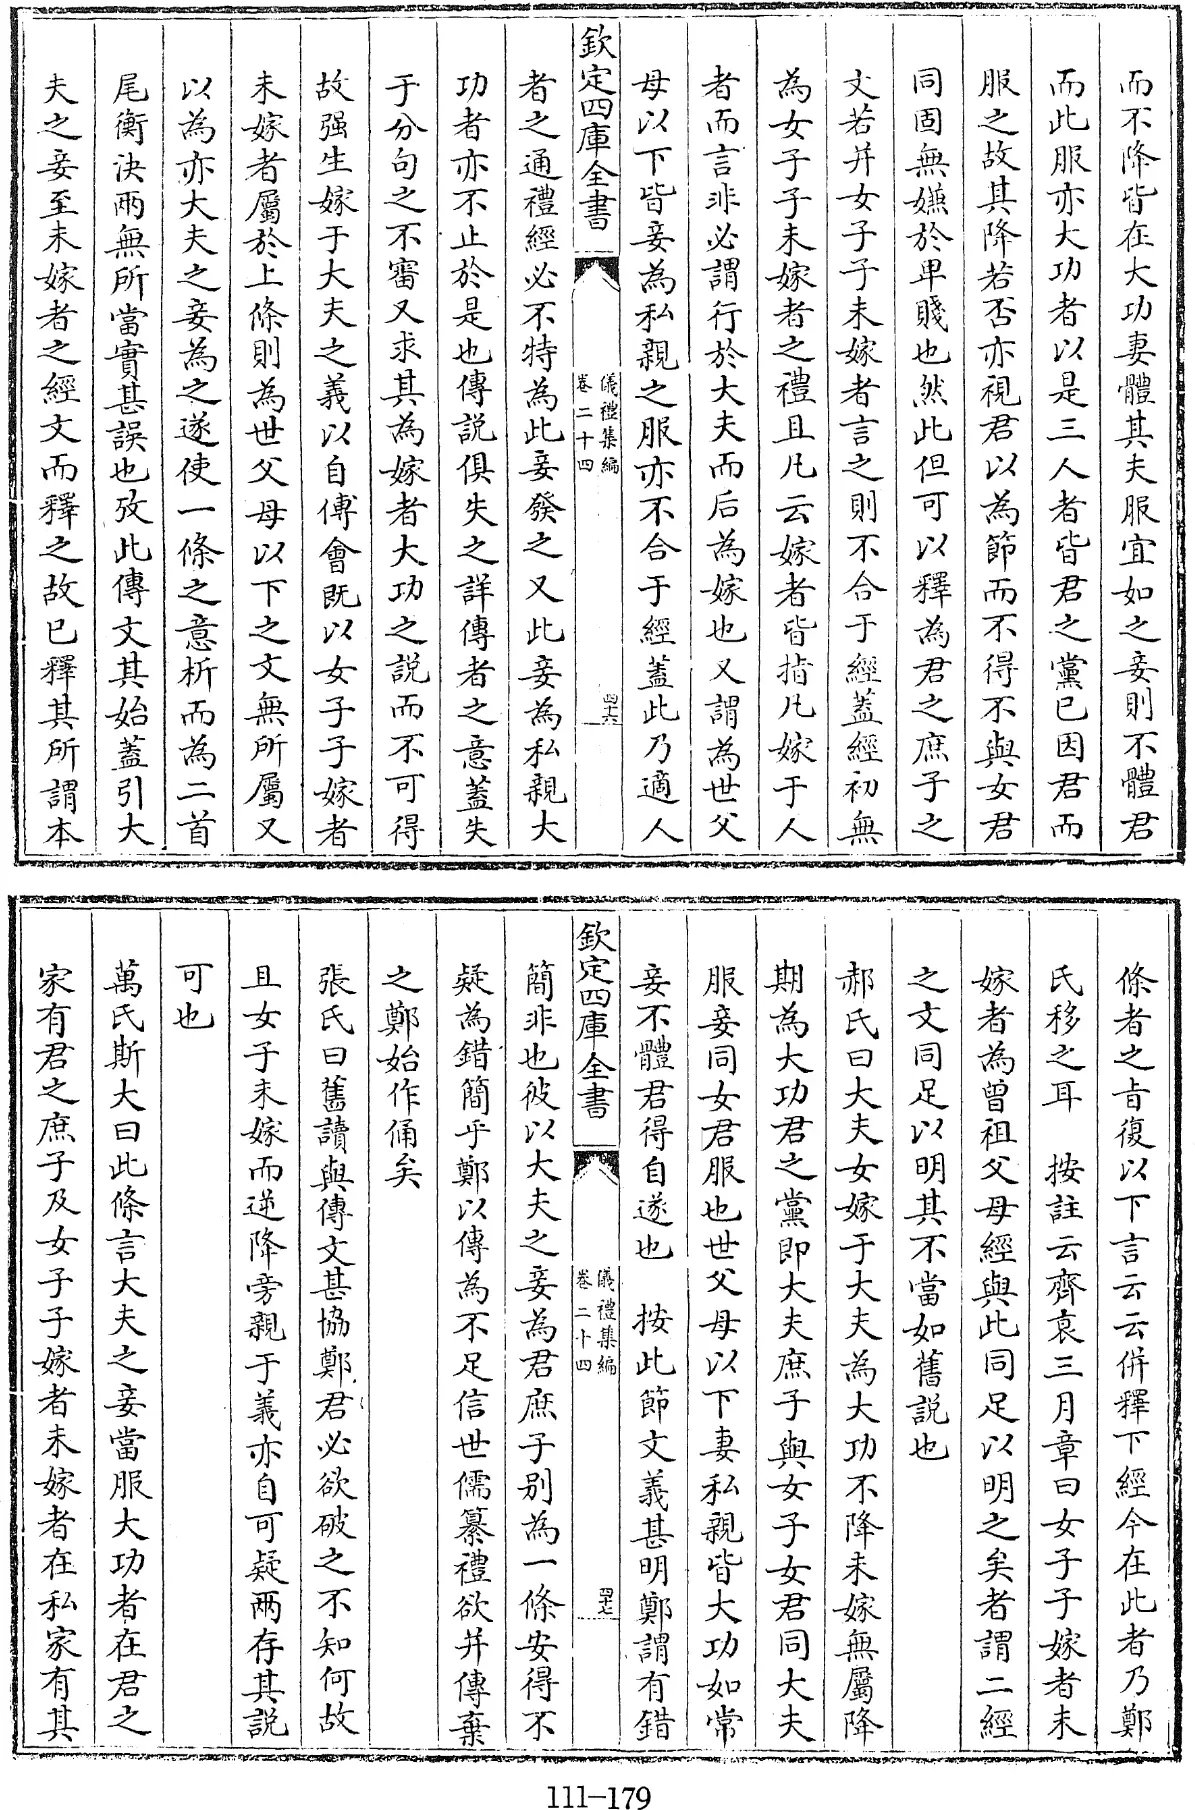 而不降皆在大功妻體其夫服宜如之妾則不體君
而此服亦大功者以是三人者皆君之黨已因君而
服之故其降若否亦視君以為節而不得不與女君
同固無嫌於卑賤也然此但可以釋為君之庶子之
文若并女子子未嫁者言之則不合于經蓋經初無
為女子子未嫁者之禮且凡云嫁者皆指凡嫁于人
者而言非必謂行於大夫而后為嫁也又謂為世父
母以下皆妾為私親之服亦不合于經蓋此乃適人
欽定四庫全書
儀禮集編
卷二十四
四十六
者之通禮經必不特為此妾發之又此妾為私親大
功者亦不止於是也傳說俱失之詳傳者之意蓋失
于分句之不審又求其為嫁者大功之說而不可得
故强生嫁于大夫之義以自傅會既以女子子嫁者
未嫁者屬於上條則為世父母以下之文無所屬又
以為亦大夫之妾為之遂使一條之意析而為二首
尾衡決兩無所當實甚誤也攷此傳文其始蓋引大
夫之妾至未嫁者之經文而釋之故已釋其所謂本
條者之旨復以下言云云併釋下經今在此者乃鄭
氏移之耳　按註云齊衰三月章曰女子子嫁者未
嫁者為曾祖父母經與此同足以明之矣者謂二經
之文同足以明其不當如舊說也
郝氏曰大夫女嫁于大夫為大功不降未嫁無屬降
期為大功君之黨即大夫庶子與女子女君同大夫
服妾同女君服也世父母以下妻私親皆大功如常
妾不體君得自遂也　按此節文義甚明鄭謂有錯
欽定四庫全書
儀禮集編
卷二十四
四十七
簡非也彼以大夫之妾為君庶子别為一條安得不
疑為錯簡乎鄭以傳為不足信世儒纂禮欲并傳棄
之鄭始作俑矣
張氏曰舊讀與傳文甚協鄭君必欲破之不知何故
且女子未嫁而逆降旁親于義亦自可疑兩存其說
可也
萬氏斯大曰此條言大夫之妾當服大功者在君之
家有君之庶子及女子子嫁者未嫁者在私家有其
111-179